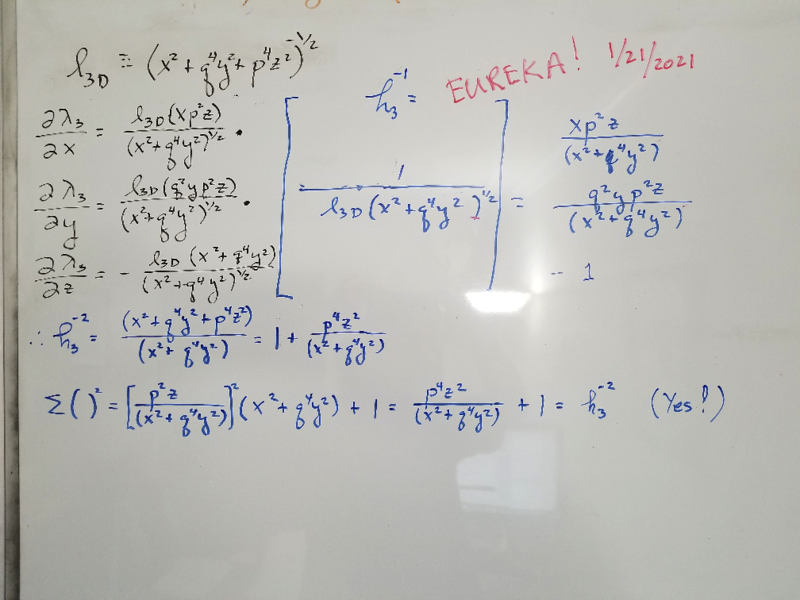 l₃D ≡ (x² + q⁴y² + p⁴z²)^-1/2
EUREKA! 1/21/2021
h₃⁻¹ =
∂λ₃/∂x = l₃D(xp²z)/(x² + q⁴y²)^1/2 •
∂λ₃/∂y = l₃D(q²yp²z)/(x² + q⁴y²)^1/2 •
∂λ₃/∂z = - l₃D(x² + q⁴y²)/(x² + q⁴y²)^1/2
[1/(l₃D(x² + q⁴y²)^1/2)] =
xp²z/(x² + q⁴y²)
q²yp²z/(x² + q⁴y²)
- 1
∴ h₃⁻² = (x² + q⁴y² + p⁴z²)/(x² + q⁴y²) = 1 + p⁴z²/(x² + q⁴y²)
Σ( )² = [p²z/(x² + q⁴y²)]²(x² + q⁴y²) + 1 = p⁴z²/(x² + q⁴y²) + 1 = h₃⁻² (Yes!)